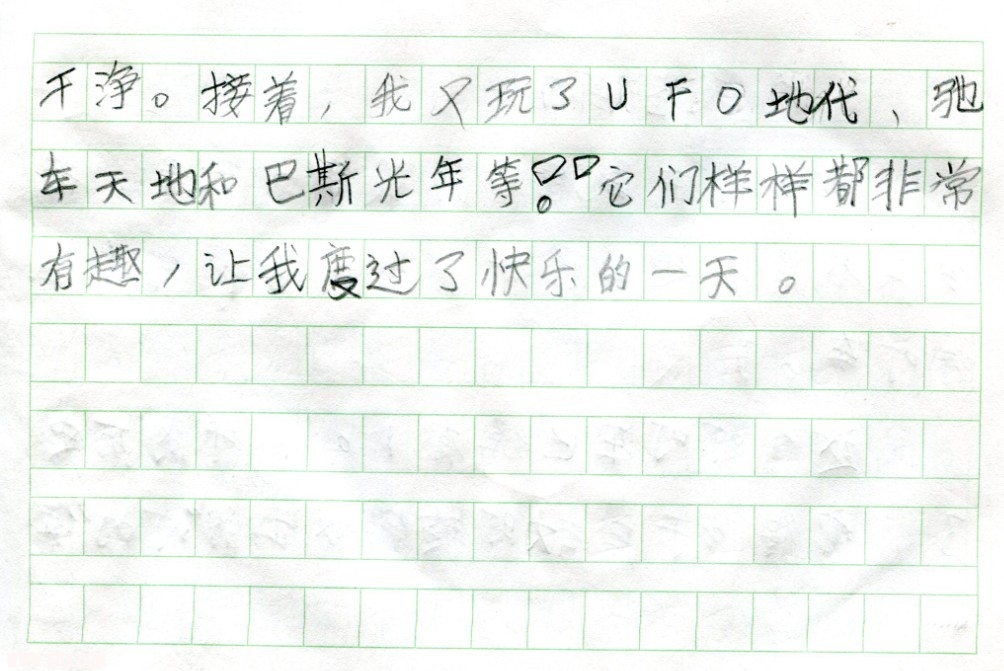 干净。接着，我又玩了UFO地代、驰
车天地和巴斯光年等。它们样样都非常
有趣，让我度过了快乐的一天。